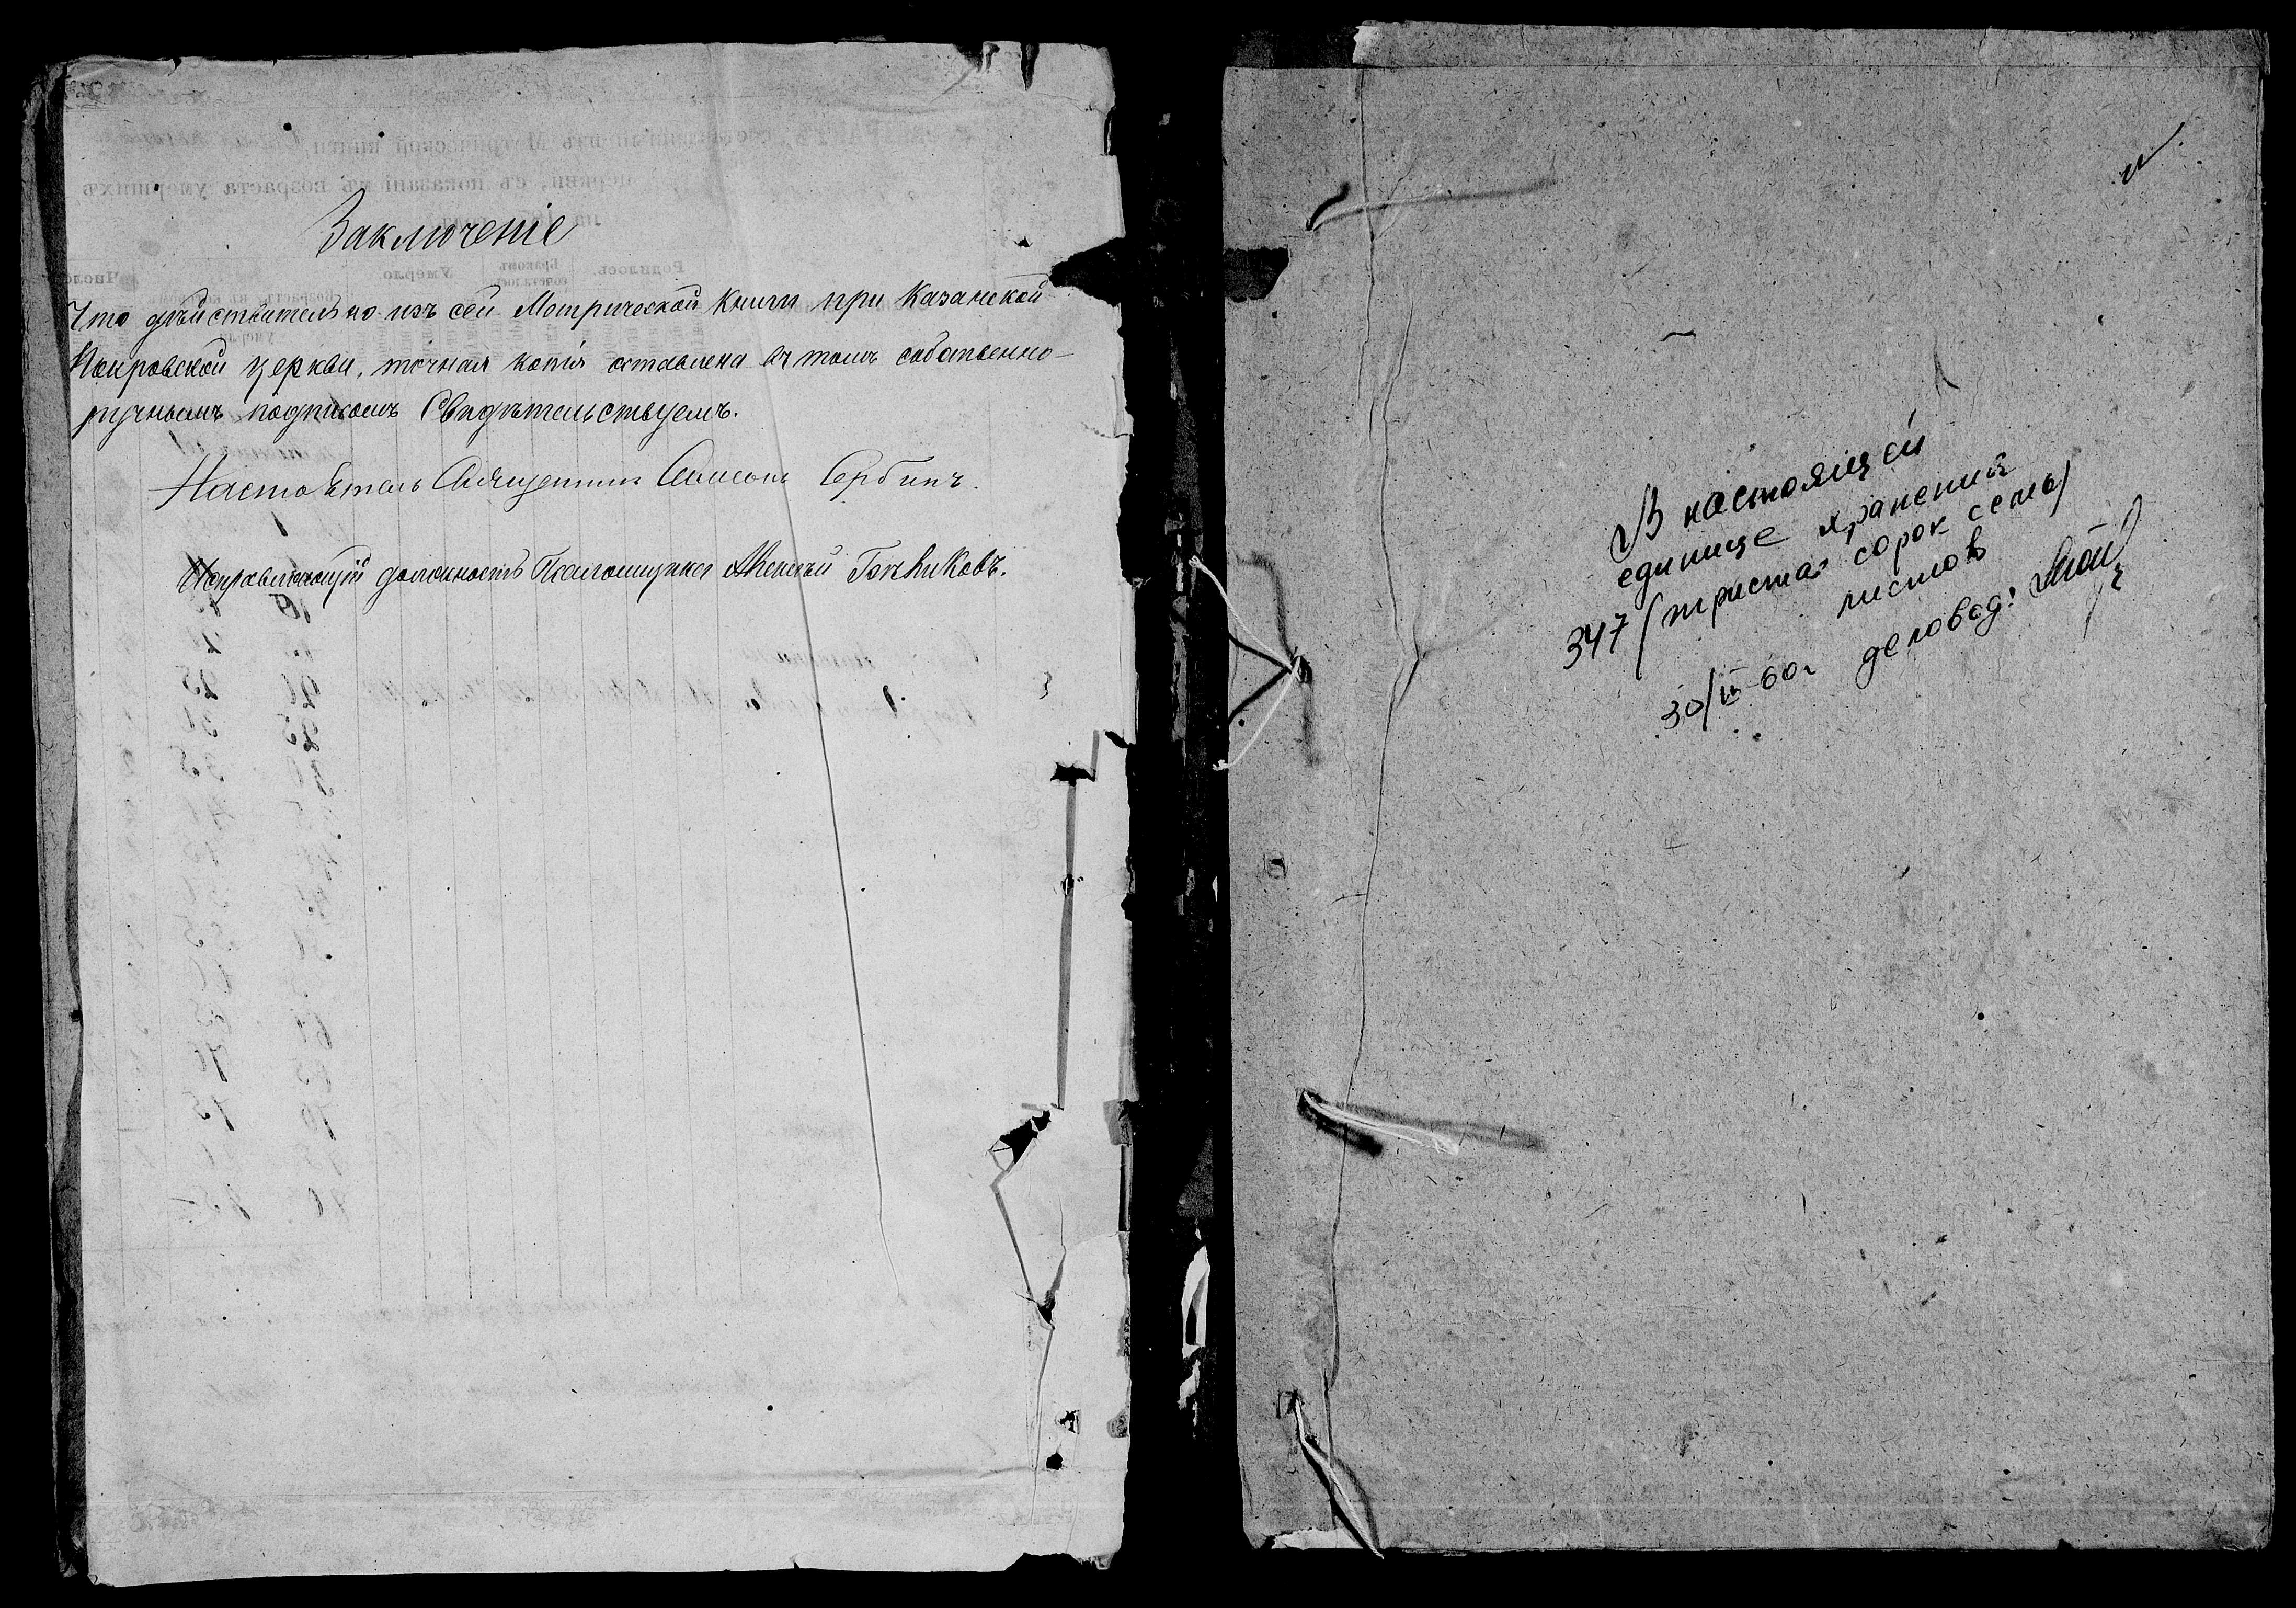 Заключеніе
Что дѣйствительно изъ сей Метрической книги при Казанской
Покровской церкви, точная копія оставлена въ томъ собственно-
ручнымъ подписомъ Свидѣтельствуемъ.
Настоятель Священникъ Симеонъ Сербинъ.
Исправляющій должность Псаломщика Алексѣй
В настоящей
единице хранения
347 (триста сорок семь)
листов
30/IV-60г деловод: